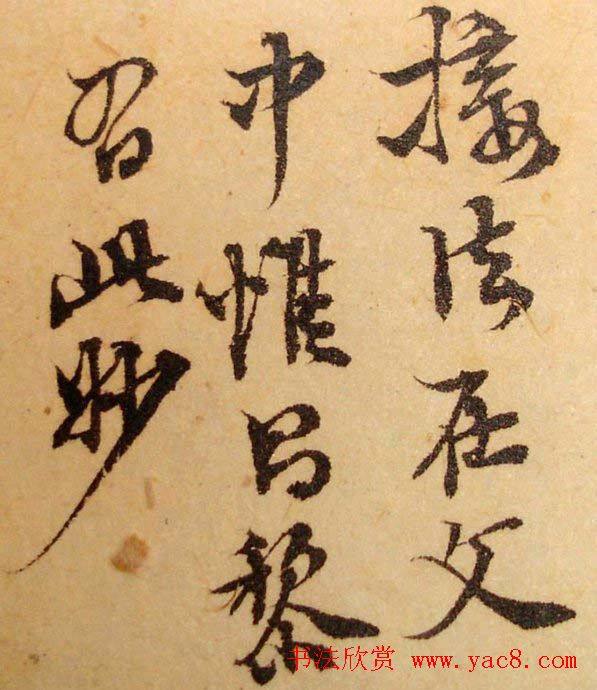 接法在文
中惟昌黎
有此妙
书法欣赏 www.yac8.com